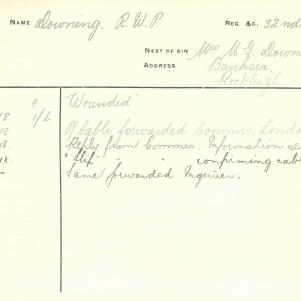 NAME Downing. R. W. P. REG. &C. 32nd
NEXT OF KIN Mrs M. G. Down
ADDRESS Banksia,
Rockleigh
# "Wounded"
18 1/L
18 Cable forwarded Commrs. Lond
18. Reply from Commrs. Information
18. " " " confirming cab
" Same forwarded Inquirer.